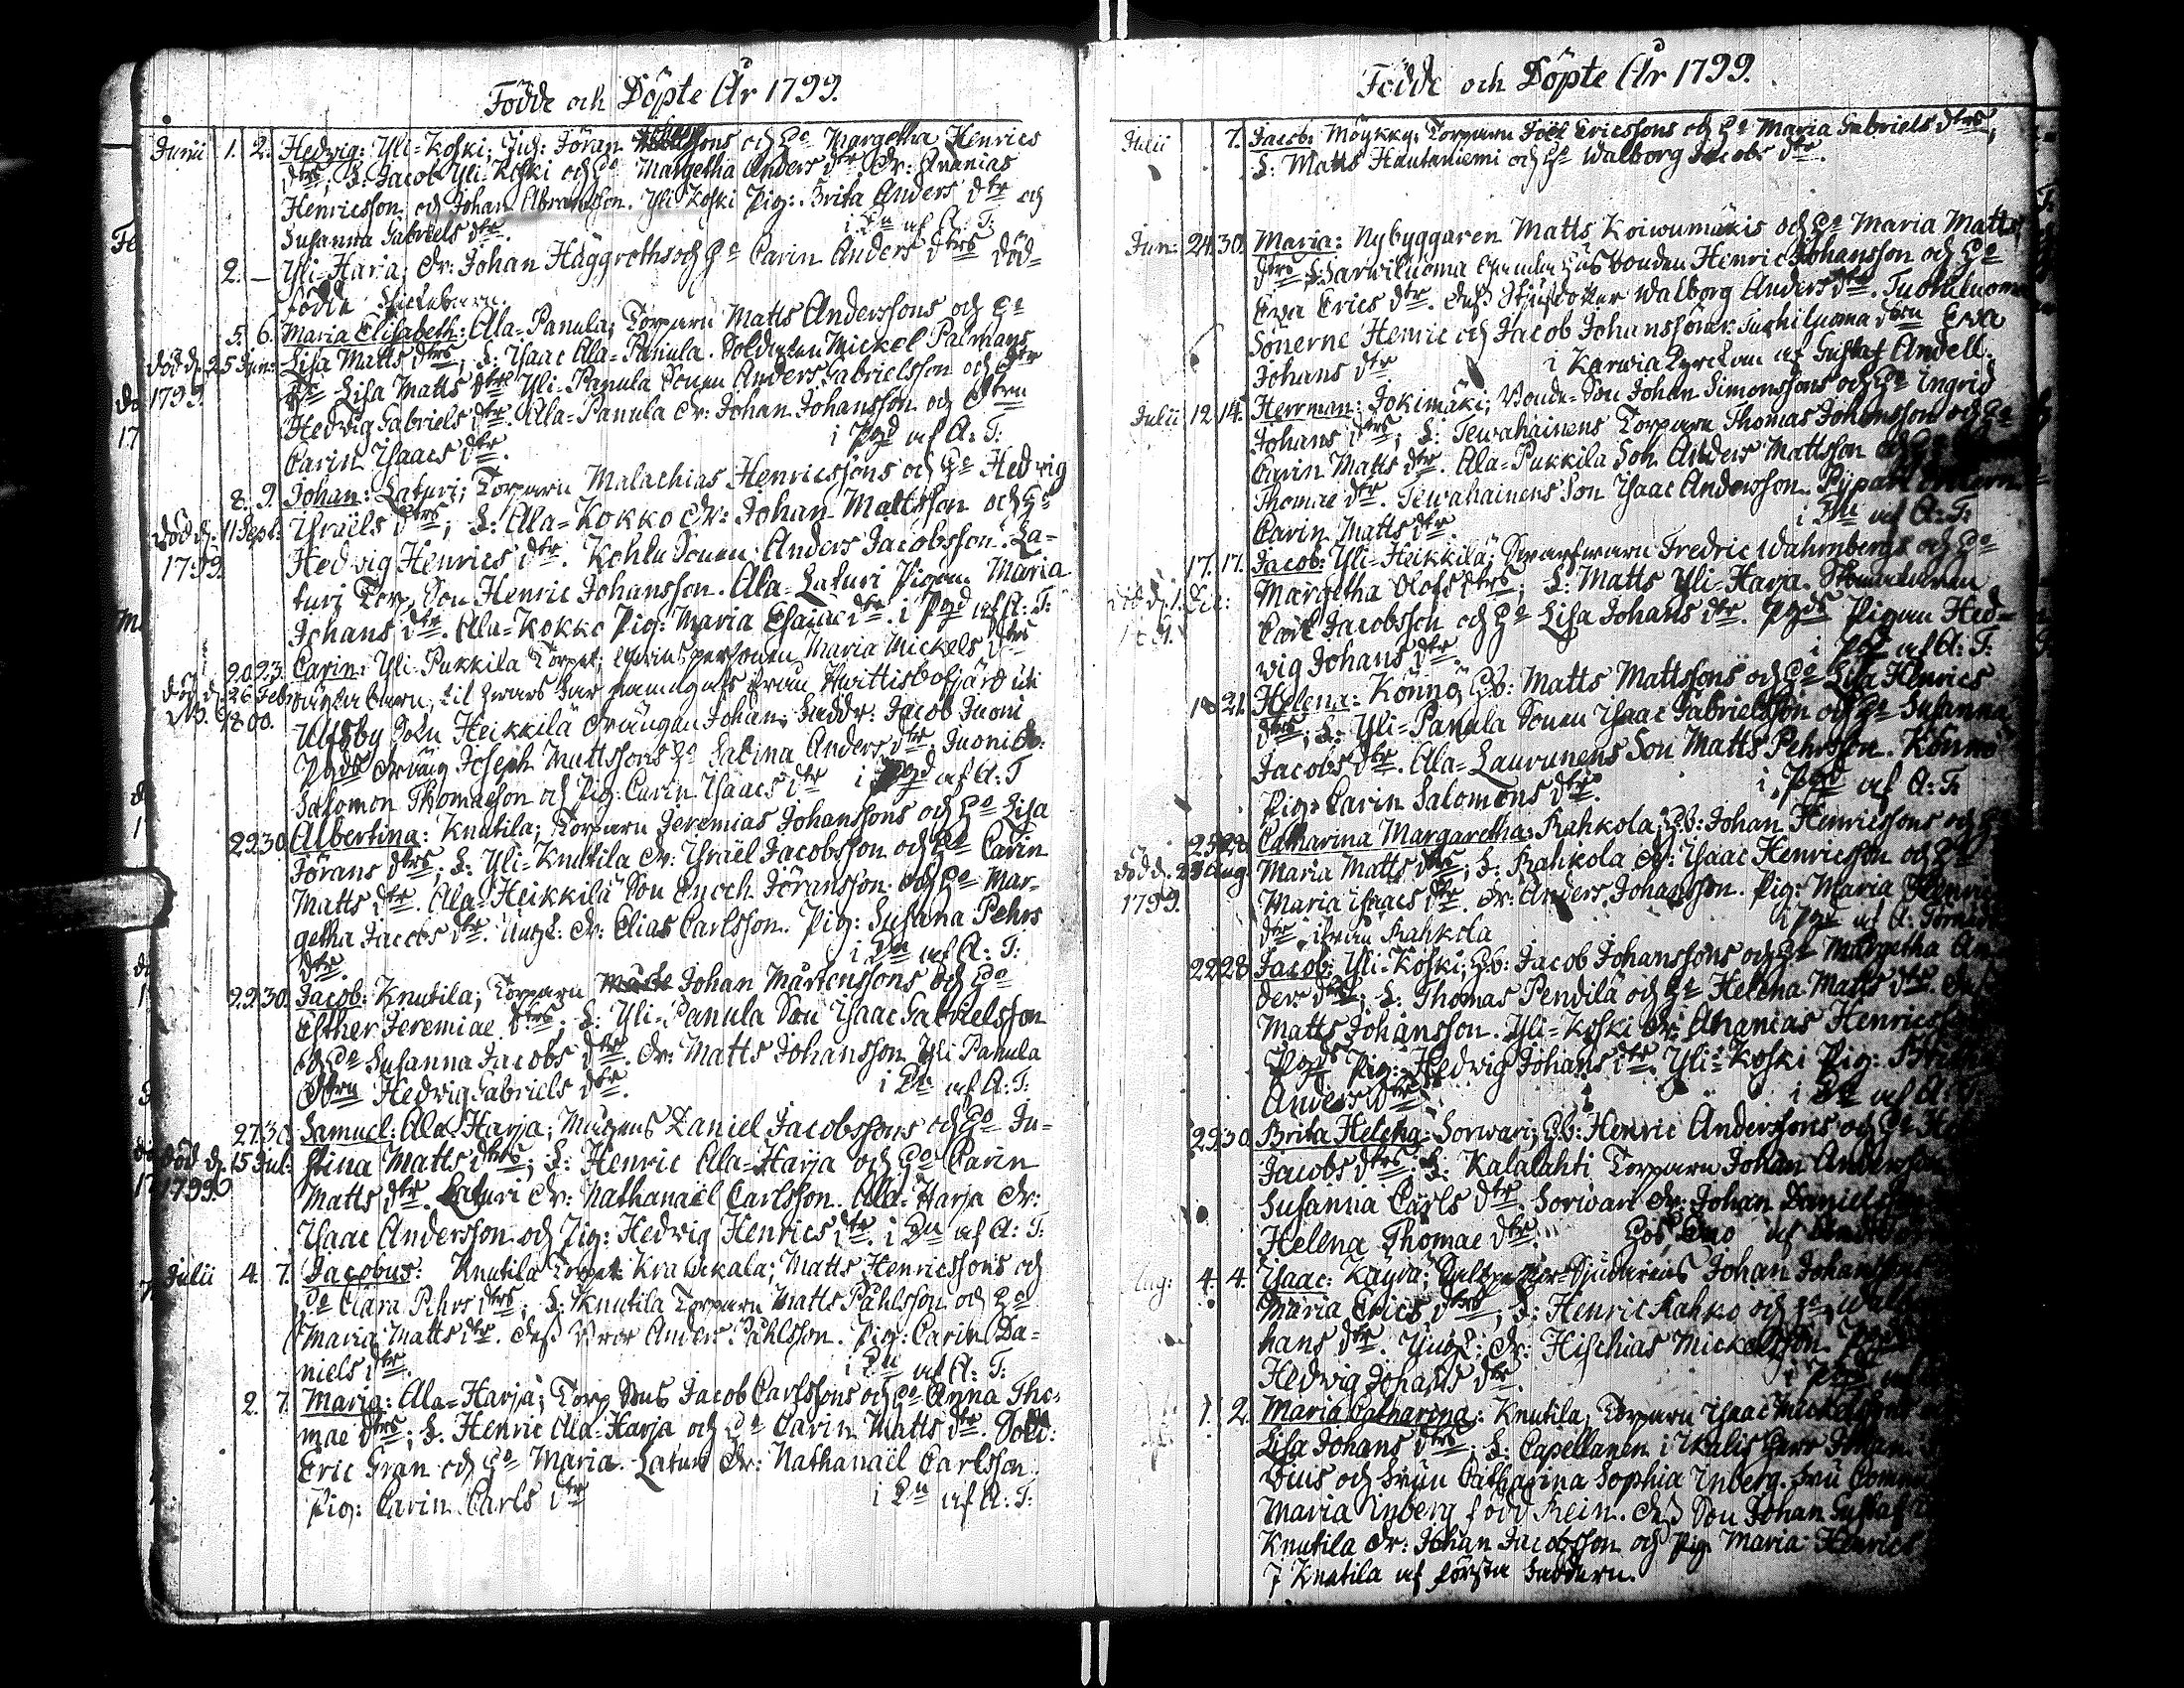 Födde och Döpte År 1799.
Junii 1. 2. Hedwig: Yli-Koski; Jnh: Jöran Johanssons och H:o Margetha Henrics
dtrs; L: Jacob Yli-Koski och H:o Margetha Anders dtr Dr: Ananias
Henricsson och Johan Abramsson. Yli-Koski Pig: Brita Anders dtr och
Susanna Gabriels dtr. i Dn af A: T:
2. — Yli-Harja; Dr: Johan Häggroths och H:o Carin Anders dtrs död-
födde flickebarn.
5. 6. Maria Elisabeth: Ala-Panula; Torparn Matts Anderssons och H:o
död d. 25 Jun: Lisa Matts dtrs; L: Ysaac Ala-Panula. Soldaten Mickel Palmans
1799. H:o Lisa Matts dtr Yli-Panula Sonen Anders Gabrielsson och dtr
Hedvig Gabriels dtr. Ala-Panula Dr: Johan Johansson och dtren
Carin Ysaacs dtr. i Pgd af A: T:
8. 9. Johan: Laturi; Torparn Malachias Henricssons och H:o Hedvig
död d: 11 Sept: Ysraëls dtrs; L: Ala-Kokko Dr: Johan Mattsson och H:o
1799. Hedvig Henrics dtr. Kohlu Sonen Anders Jacobsson. La-
turi Torp. Son Henric Johansson. Ala-Laturi Pigan Maria
Johans dtr. Ala-Kokko Pig: Maria Esaiae dtr. i Pgd af A: T:
20. 23. Carin: Yli-Pukkila Torpet; qwinspersonen Maria Mickels dtrs
död d. 26 Febr oägta barn, til hwars far namngafs från Hwittisbofjärd uti
1800. Ulfsby Sokn Heikkilä Drängen Johan. Faddr: Jacob Juoni
Pgds Dräng Joseph Mattssons H:o Sabina Anders dtr. Juoni Dr:
Salomon Thomaeson och Pig: Carin Ysaacs dtr i Pgd af A: T
29. 30. Albertina: Knutila; Torparn Jeremias Johanssons och H:o Lisa
Jörans dtrs; L: Yli-Knutila Dr: Ysraël Jacobsson och H:o Carin
Matts dtr. Ala-Heikkilä Son Enoch Jöransson och H:o Mar-
getha Jacobs dtr. Ungk: Dr: Elias Carlsson. Pig: Susana Pehrs
dtr. i Dn af A: T:
29. 30. Jacob: Knutila; Torparn Johan Mårtenssons och H:o
Esther Jeremiae dtrs; L: Yli-Panula Son Ysaac Gabrielsson
och H:o Susanna Jacobs dtr. Dr: Matts Johansson Yli-Panula
dtren Hedvig Gabriels dtr. i Dn af A: T:
27. 30. Samuel: Ala-Harja; Mågens Daniel Jacobssons och H:o Ju-
död d. 15 Jul: stina Matts dtrs; L: Henric Ala-Harja och H:o Carin
1799 Matts dtr. Laturi Dr: Nathanaël Carlsson. Ala-Harja Dr:
Ysaac Andersson och Pig: Hedvig Henrics dtr. i Dn af A: T:
Julii 4. 7. Jacobus: Knutila Torpet Krawikala; Matts Henricssons och
H:o Clara Pehrs dtrs; L: Knutila Torparn Matts Påhlsson och H:o
Maria Matts dtr. dess Bror Anders Påhlsson. Pig: Carin Da-
niels dtr. i Dn af A: T:
2. 7. Maria: Ala-Harja; Torp Sons Jacob Carlssons och H:o Anna Tho-
mae dtrs; L: Henric Ala-Harja och H:o Carin Matts dtr. Sold:
Eric Gran och H:o Maria. Laturi Dr: Nathanaël Carlsson
Pig: Carin Carls dtr i Dn af A: T:
Födde och Döpte År 1799.
Julii 7. Jacob: Möykky; Torparn Joël Ericssons och H:o Maria Gabriels dtrs;
L: Matts Hautaniemi och H:o Walborg Jacobs dtr.
Jun: 24. 30. Maria: Nybyggaren Matts Koiwumäkis och H:o Maria Matts
dtrs L: Sarwiluoma Husbonden Henric Johansson och H:o
Eva Erics dtr. dess Stjufdotter Walborg Anders dtr.
Sönerne Henric och Jacob Johanssöner. dtren Eva
Johans dtr i Karwia Kyrckan af Gustaf Andell.
Julii 12. 14. Herrman: Jokimäki; Bonde-Son Johan Simonssons och H:o Ingrid
Johans dtrs; L: Tewahainens Torparn Thomas Johansson och H:o
Carin Matts dtr. Ala-Pukkila Son Anders Mattsson och H:o
Thomae dtr. Tewahainens Son Ysaac Andersson.
Carin Matts dtr i Dn af A: T:
17. 17. Jacob: Yli-Heikkilä; Swarfwarn Fredric Wahrnbergs och H:o
död d. 1. Dec: Margetha Olofs dtrs; L: Matts Yli-Harja. Skomakaren
Carl Jacobsson och H:o Lisa Johans dtr. Pgds Pigan Hed-
wig Johans dtr. i Pgd af A: T:
18 21. Helena: Könnö; H.b: Matts Mattssons och H:o Lisa Henrics
dtrs; L: Yli-Panula Sonen Ysaac Gabrielsson och H:o Susanna
Jacobs dtr. Ala-Laurunens Son Matts Pehrsson. Könnö
Pig: Carin Salomons dtr. i Pgd af A: T:
25. 28. Catharina Margaretha: Rahkola; H.b: Johan Henricssons och H:o
död d. 23 Aug Maria Matts dtrs; L: Rahkola Dr: Ysaac Henricsson och H:o
1799. Maria Ysaacs dtr. Dr: Anders Johansson. Pig: Maria Henrics
dtr, ifrån Rahkola i Pgd af A:
22. 28. Jacob: Yli-Koski; H.b: Jacob Johanssons och H:o Margetha An-
ders dtrs; L: Thomas Pendilä och H:o Helena Matts dtr.
Matts Johansson. Yli-Koski Dr: Ananias Henricsson
Pgds Pig: Hedvig Johans dtr. Yli-Koski Pig: Brita
Anders dtr. i Dn af A: T:
29. 30. Brita Helena: Sorwari; H.b: Henric Anderssons och H:o
Jacobs dtrs. L: Kalalahti Torparn Johan Andersson
Susanna Carls dtr. Sorwari Dr: Johan Danielsson
Helena Thomae dtr.
Aug: 4. 4. Ysaac: Käyrä; Johan Johanssons
Maria Erics dtrs; L: Henric Rahko och H:o Walb
hans dtr. Ungk: Dr: Hischias Mickelsson. Pgds
Hedvig Johans dtr. i Pgd
1. 2. Maria Catharina: Knutila; Torparn Ysaac Mickelssons
Lisa Johans dtrs; L: Capellanen i Ikalis Herr Johan
vius och Frun Catharina Sophia Inberg. Fru
Maria Inberg född Rein. dess Son Johan Gustaf
Knutila Dr: Johan Jacobsson och Pig: Maria Henrics
i Knutila af första faddern.